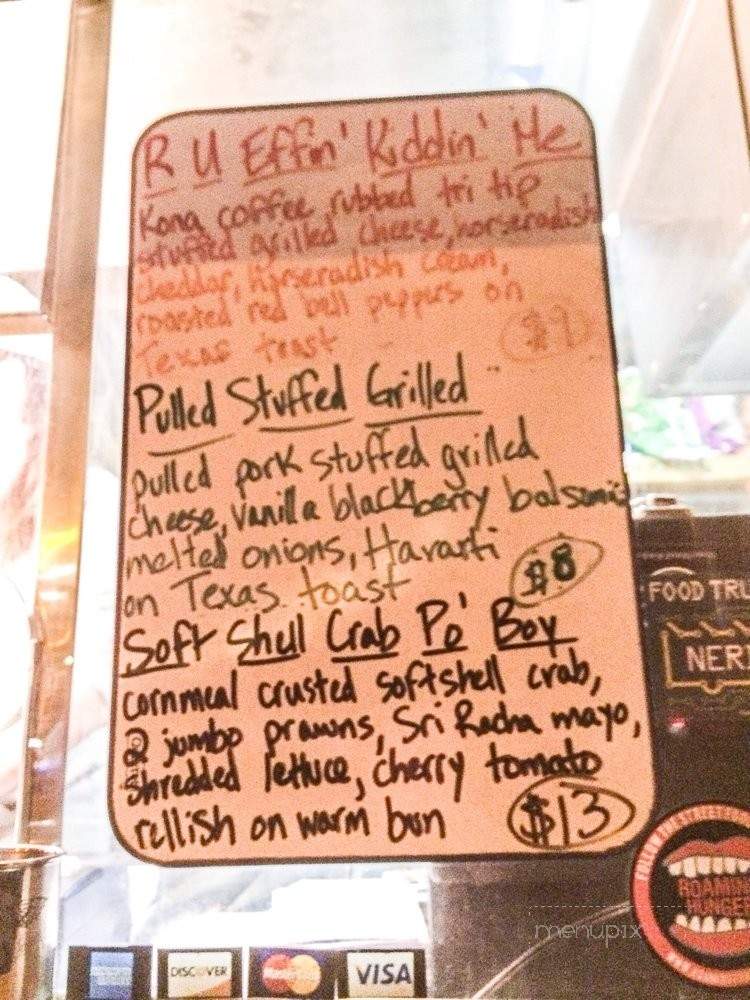 R U Effin' Kiddin' Me
Kona coffee rubbed tri tip
stuffed grilled cheese, horseradish
cheddar, horseradish cream,
roasted red bell peppers on
Texas toast
$9
Pulled Stuffed Grilled
pulled pork stuffed grilled
cheese, vanilla blackberry balsamic
melted onions, Havarti
on Texas toast
$8
Soft Shell Crab Po' Boy
cornmeal crusted softshell crab,
2 jumbo prawns, Sri Racha mayo,
shredded lettuce, cherry tomato
rellish on warm bun
$13
FOOD TRU
NER
ROAMIN
HUNGE
menupix
DISCOVER
MasterCard
VISA